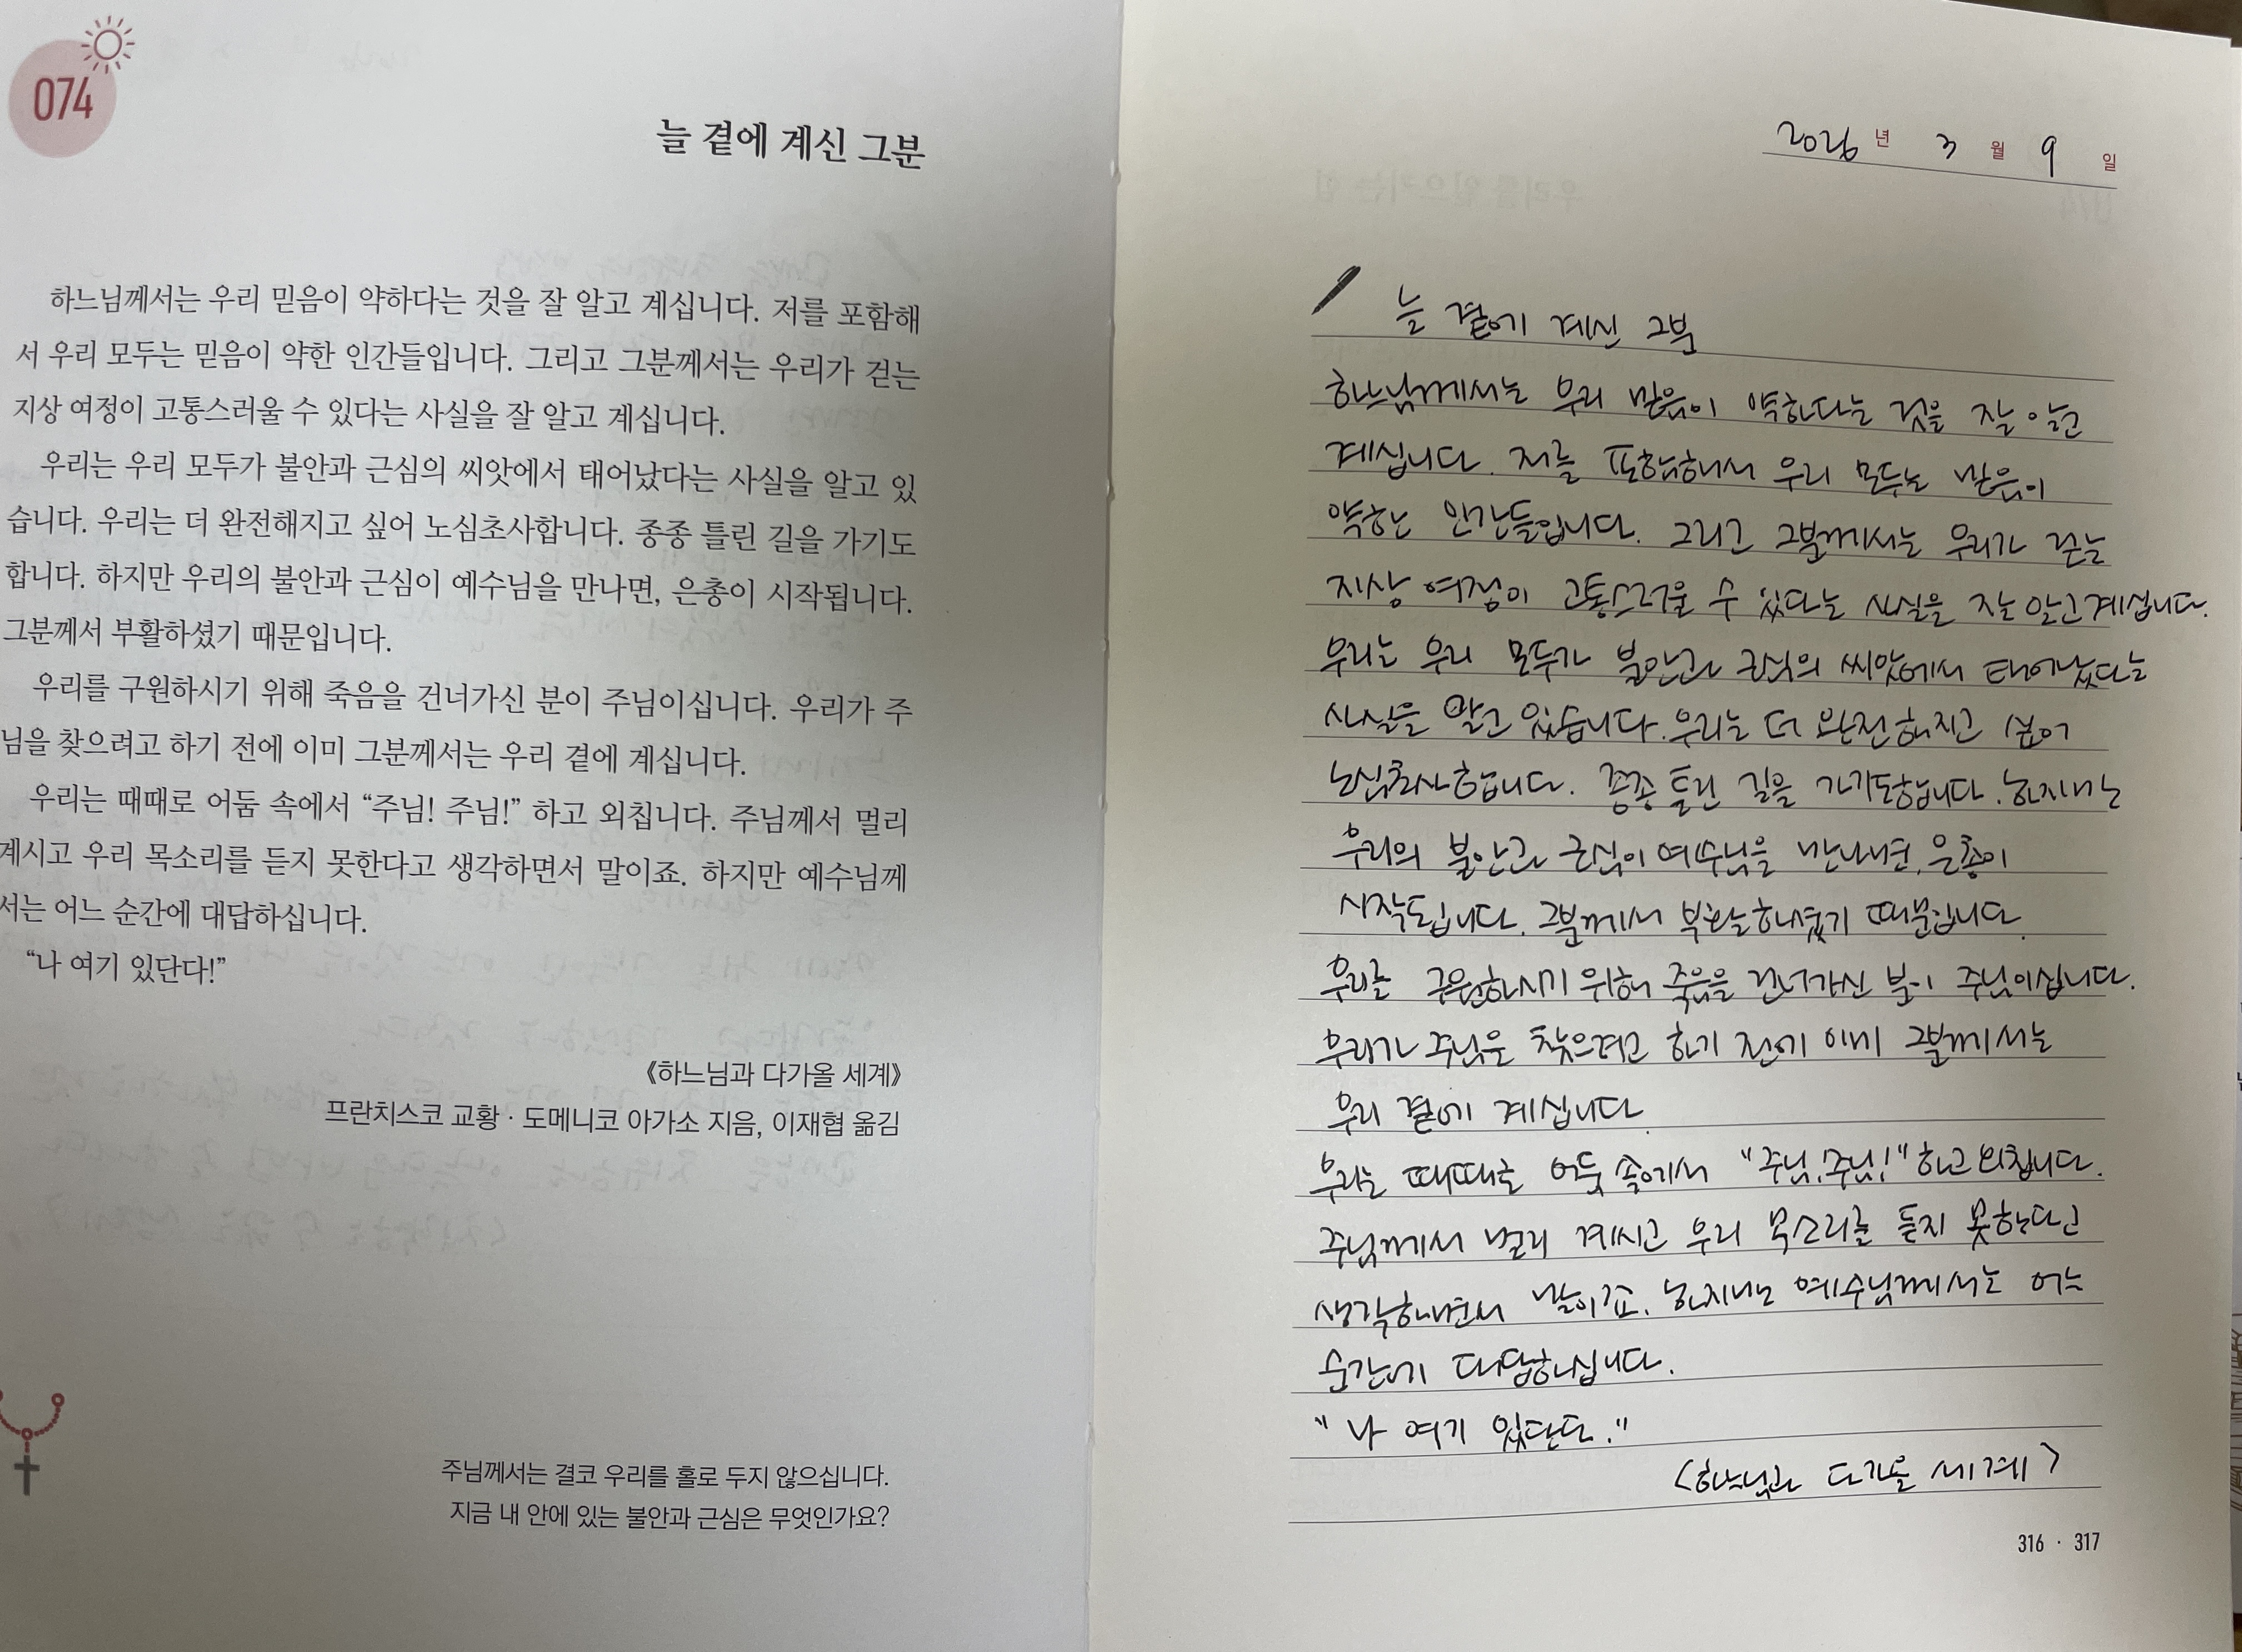 074
늘 곁에 계신 그분
하느님께서는 우리 믿음이 약하다는 것을 잘 알고 계십니다. 저를 포함해
서 우리 모두는 믿음이 약한 인간들입니다. 그리고 그분께서는 우리가 걷는
지상 여정이 고통스러울 수 있다는 사실을 잘 알고 계십니다.
우리는 우리 모두가 불안과 근심의 씨앗에서 태어났다는 사실을 알고 있
습니다. 우리는 더 완전해지고 싶어 노심초사합니다. 종종 틀린 길을 가기도
합니다. 하지만 우리의 불안과 근심이 예수님을 만나면, 은총이 시작됩니다.
그분께서 부활하셨기 때문입니다.
우리를 구원하시기 위해 죽음을 건너가신 분이 주님이십니다. 우리가 주
님을 찾으려고 하기 전에 이미 그분께서는 우리 곁에 계십니다.
우리는 때때로 어둠 속에서 “주님! 주님!” 하고 외칩니다. 주님께서 멀리
계시고 우리 목소리를 듣지 못한다고 생각하면서 말이죠. 하지만 예수님께
서는 어느 순간에 대답하십니다.
“나 여기 있단다!”
《하느님과 다가올 세계》
프란치스코 교황 · 도메니코 아가소 지음, 이재협 옮김
주님께서는 결코 우리를 홀로 두지 않으십니다.
지금 내 안에 있는 불안과 근심은 무엇인가요?
2026 년 3 월 9 일
늘 곁에 계신 그분
하느님께서는 우리 믿음이 약하다는 것을 잘 알고
계십니다. 저를 포함해서 우리 모두는 믿음이
약한 인간들입니다. 그리고 그분께서는 우리가 걷는
지상 여정이 고통스러울 수 있다는 사실을 잘 알고 계십니다.
우리는 우리 모두가 불안과 근심의 씨앗에서 태어났다는
사실을 알고 있습니다. 우리는 더 완전해지고 싶어
노심초사합니다. 종종 틀린 길을 가기도합니다. 하지만
우리의 불안과 근심이 예수님을 만나면, 은총이
시작됩니다. 그분께서 부활하셨기 때문입니다.
우리를 구원하시기 위해 죽음을 건너가신 분이 주님이십니다.
우리가 주님을 찾으려고 하기 전에 이미 그분께서는
우리 곁에 계십니다.
우리는 때때로 어둠 속에서 "주님! 주님!" 하고 외칩니다.
주님께서 멀리 계시고 우리 목소리를 듣지 못한다고
생각하면서 말이죠. 하지만 예수님께서는 어느
순간에 대답하십니다.
"나 여기 있단다."
<하느님과 다가올 세계>
316 · 317